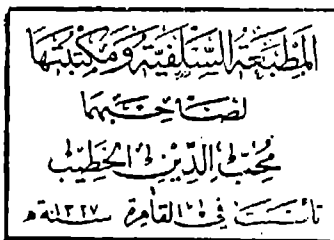 المَطْبَعَةُ السَّلَفِيَّة وَمَكْتَبَتُهَا
لصَاحِبَهَا
مُحِبّ الدِّين الخَطِيبْ
تأسست فِي القاهرة سنة ١٣٢٧هـ